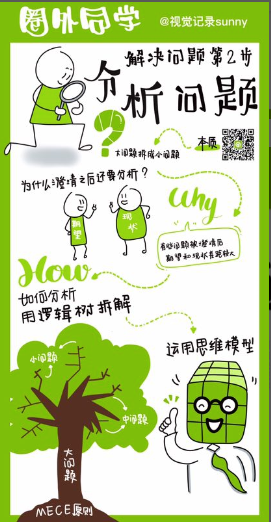 圈外同学
@视觉记录sunny
解决问题第2步
分析问题
大问题拆成小问题
本质
为什么澄清之后还要分析？
Why
期望
现状
有些问题被澄清后
期望和现状差距较大
How
如何分析
用逻辑树拆解
运用思维模型
小问题
中问题
大问题
MECE原则